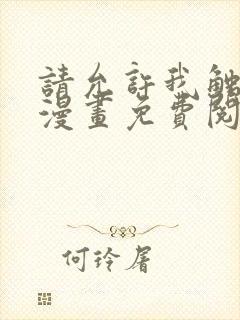 請允許我觸
漫畫免費閱
何玲屠